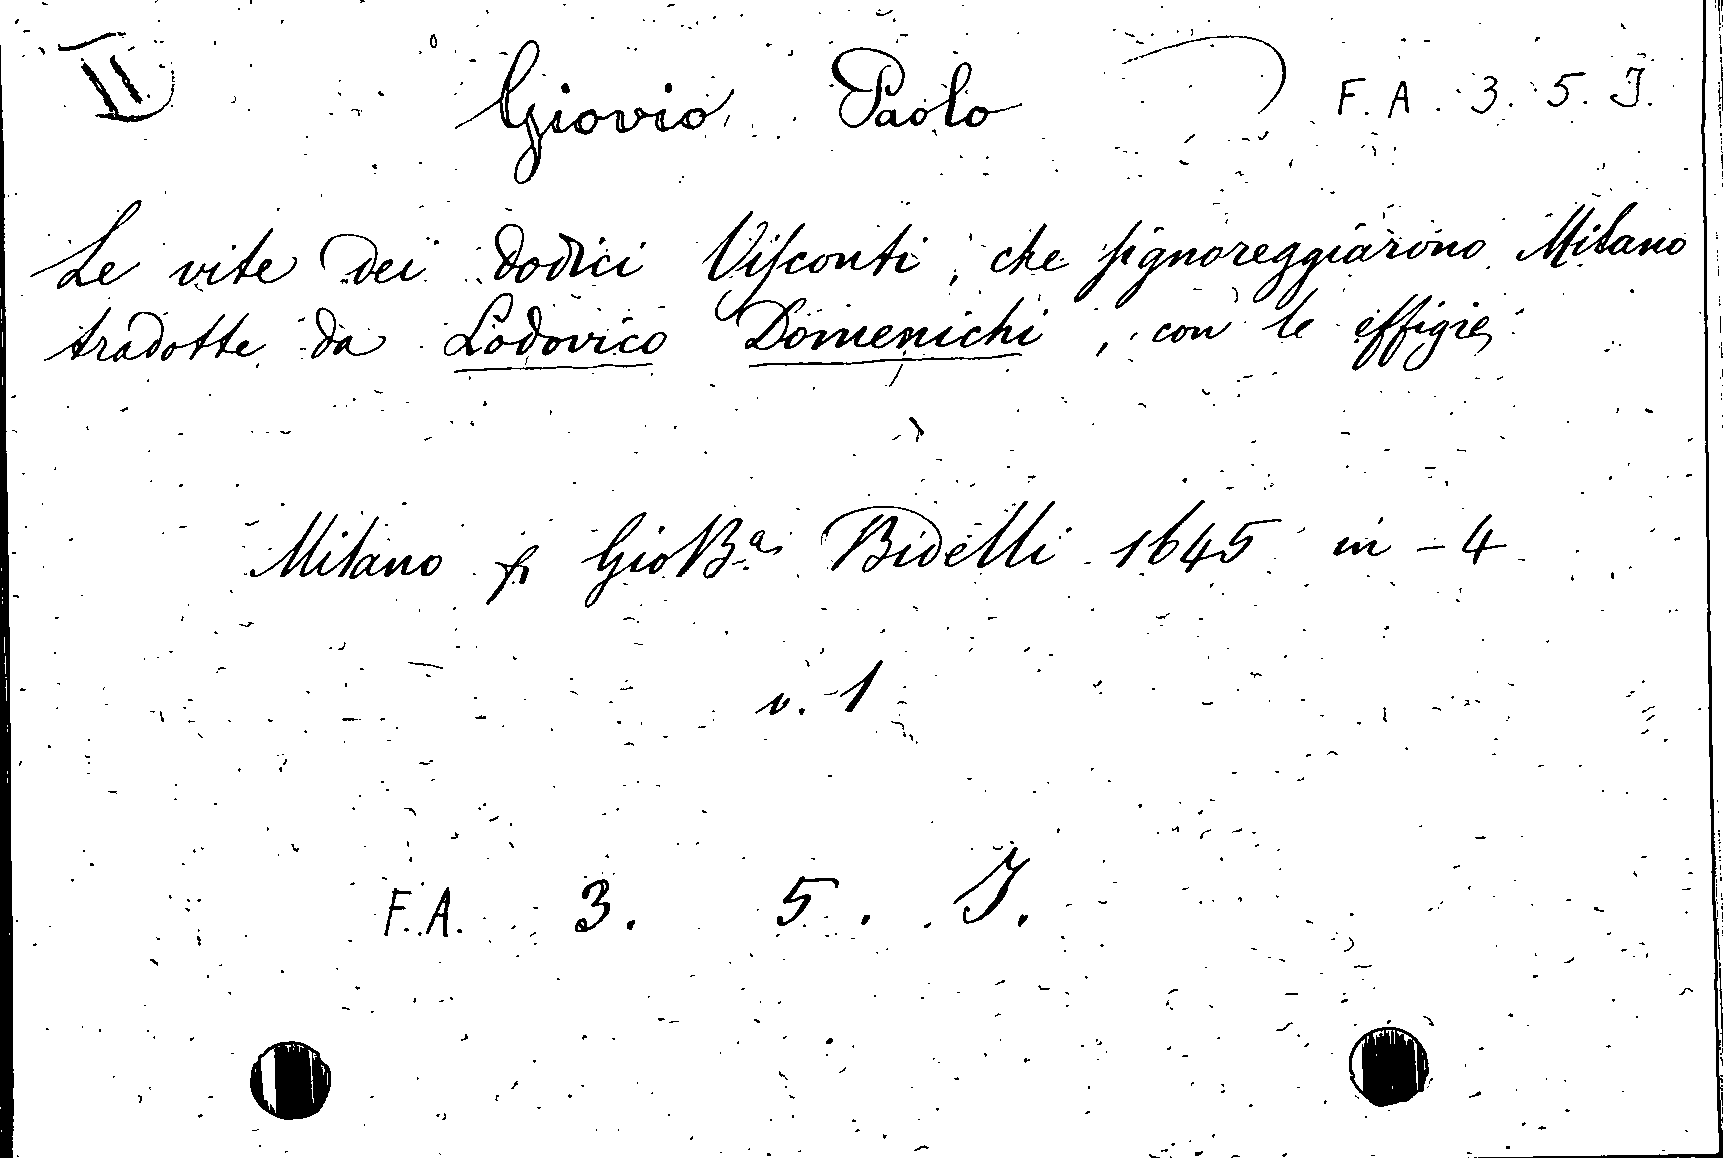 II Giovio Paolo F. A. 3. 5. I.
Le vite dei dodici Viſconti, che ſignoreggiarono Milano
tradotte da Lodovico Domenichi, con le effigie
Milano p Gio Bª Bidelli 1645 in-4
v. 1
F. A. 3. 5. I.